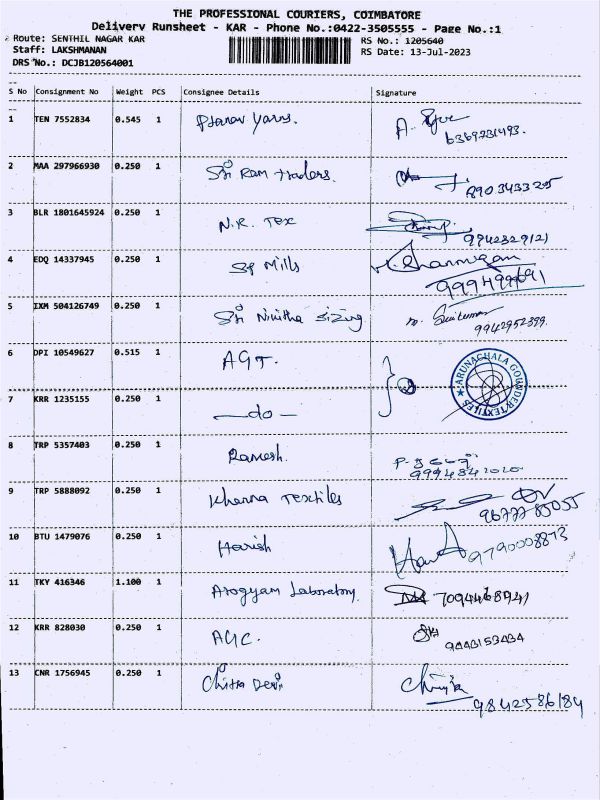 THE PROFESSIONAL COURIERS, COIMBATORE
Delivery Runsheet - KAR - Phone No.:0422-3505555 - Page No.:1
Route: SENTHIL NAGAR KAR RS No.: 1205640
Staff: LAKSHMANAN RS Date: 13-Jul-2023
DRS No.: DCJB120564001
S No Consignment No Weight PCS Consignee Details Signature
1 TEN 7552834 0.545 1 Pranav Yarns. A.
6369231493.
2 MAA 297966930 0.250 1 Sri Ram traders.
8903433225
3 BLR 1801645924 0.250 1 N.R. Tex
9942329121
4 EDQ 14337945 0.250 1 SP Mills K. Shanmugan
9994999691
5 IXM 504126749 0.250 1 Sri Nivitha Sizing
9942952399.
6 DPI 10549627 0.515 1 AGT. ARUNACHALA GOUNDER TEXTILES
7 KRR 1235155 0.250 1 —do—
8 TRP 5357403 0.250 1 Ramesh.
9 TRP 5888092 0.250 1 Khanna Textiles
9677785055
10 BTU 1479076 0.250 1 Harish
9790008873
11 TKY 416346 1.100 1 Arogyam Laboratory. 7094468941
12 KRR 828030 0.250 1
9443153434
13 CNR 1756945 0.250 1 Chitra Devi
9842586184